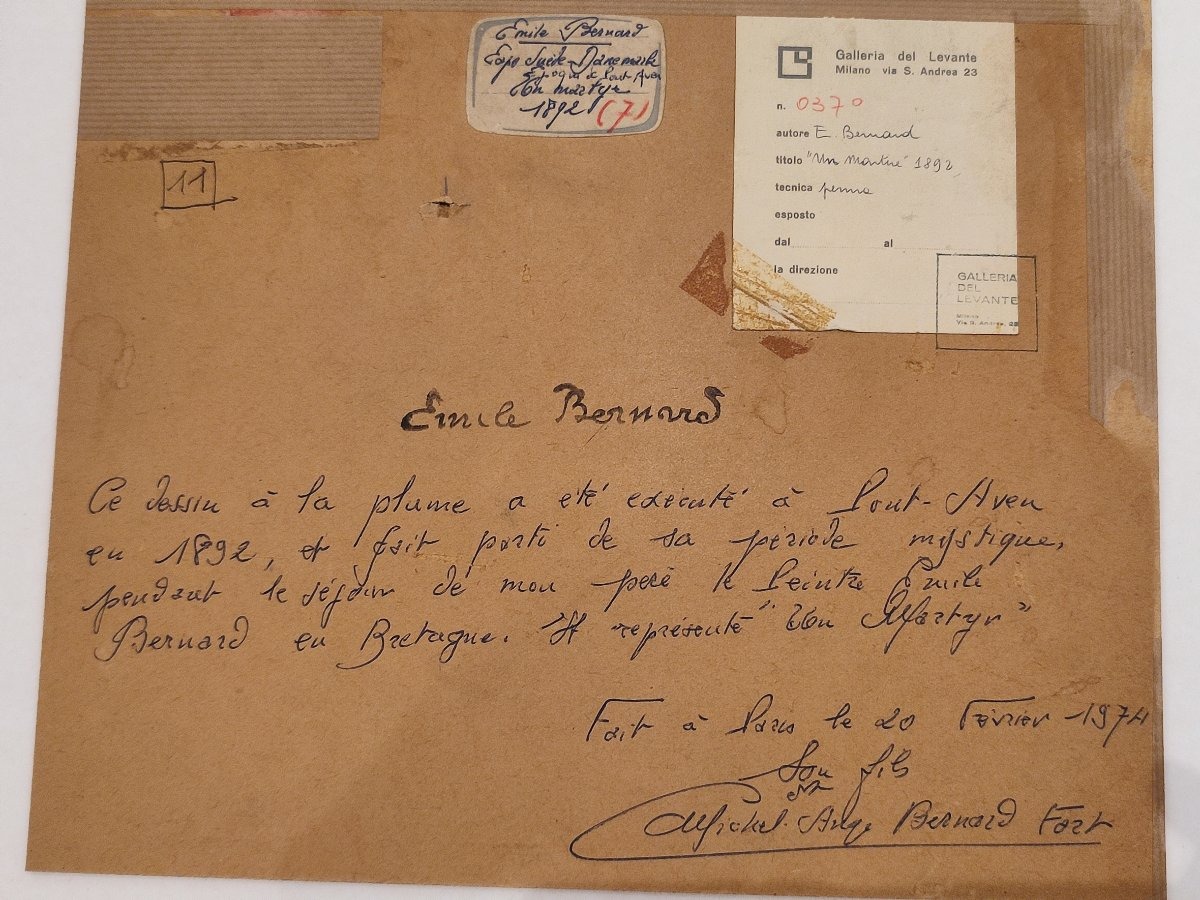 Emile Bernard
Expo Suède-Danemark
Epoque de Pont Aven
Un martyr
1892 (7)
Galleria del Levante
Milano via S. Andrea 23
n. 0370
autore E. Bernard
titolo "Un Martire" 1892
tecnica penna
esposto
dal al
la direzione
GALLERIA
DEL
LEVANTE
Milano
Via S. Andrea, 23
11
Emile Bernard
Ce dessin à la plume a été exécuté à Pont-Aven
en 1892, et fait parti de sa période mystique,
pendant le séjour de mon père le Peintre Emile
Bernard en Bretagne. Il représente "Un Martyr"
Fait à Paris le 20 Février 1974
Son fils
Michel-Ange Bernard Fort